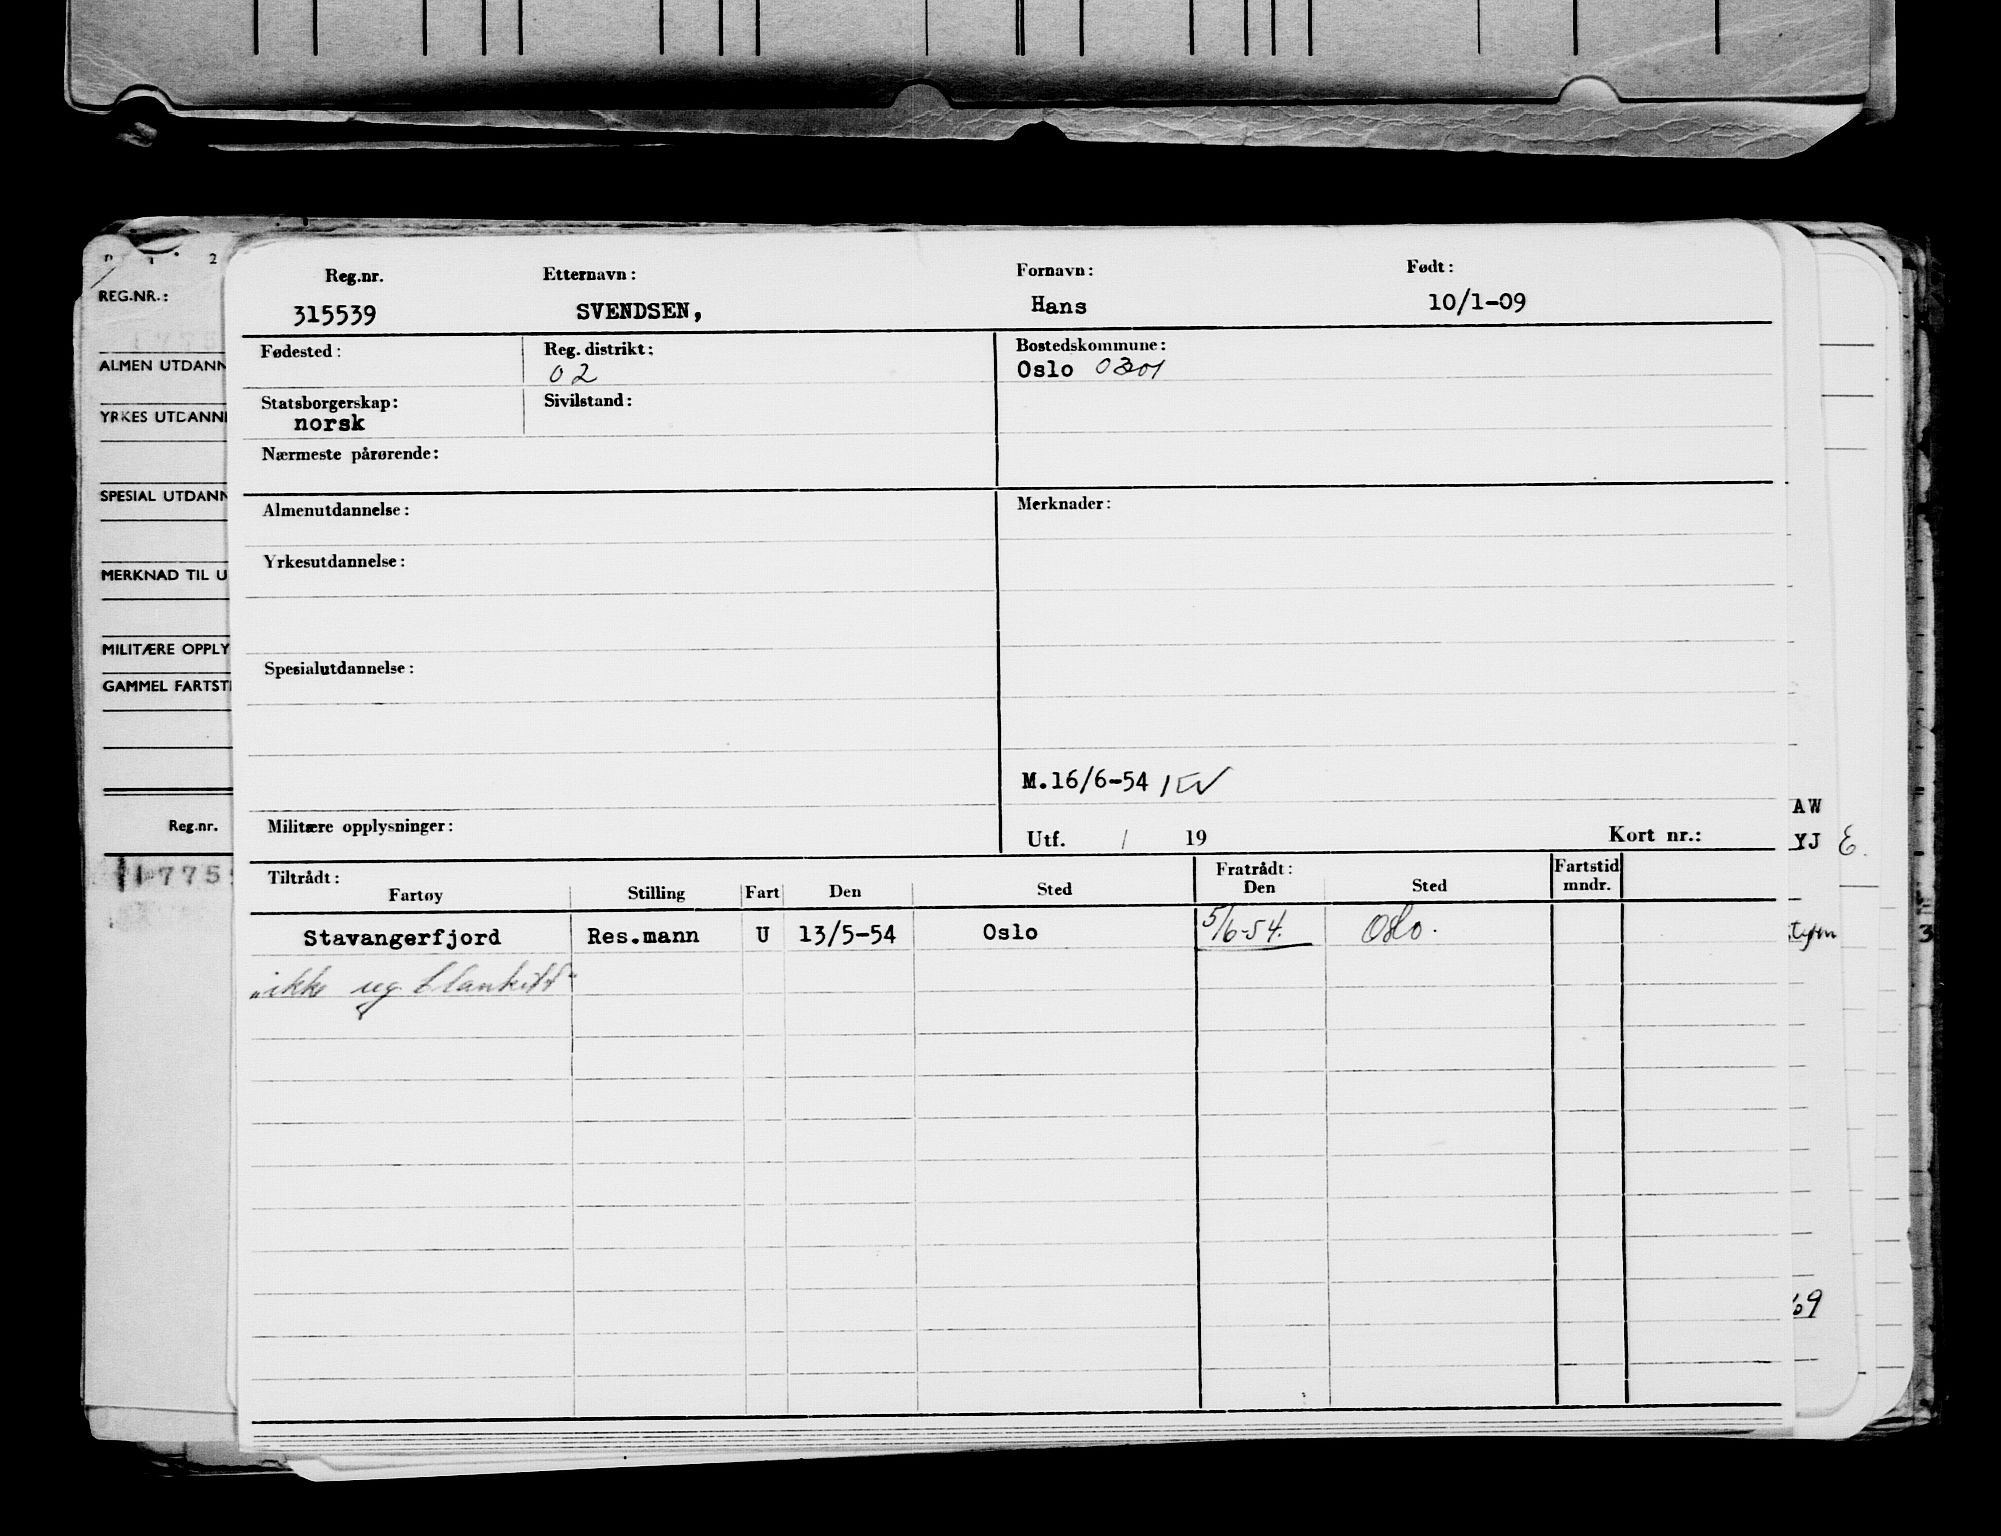 REG.NR.:
ALMEN UTDANN
YRKES UTDANN
SPESIAL UTDANN
MERKNAD TIL U
MILITÆRE OPPLY
GAMMEL FARTSTI
Reg.nr.
Reg.nr. Etternavn: Fornavn: Født:
315539 SVENDSEN, Hans 10/1-09
Fødested: Reg. distrikt: Bostedskommune:
02 Oslo 0301
Statsborgerskap: Sivilstand:
norsk
Nærmeste pårørende:
Almenutdannelse: Merknader:
Yrkesutdannelse:
Spesialutdannelse:
M.16/6-54
Militære opplysninger: Utf. / 19 Kort nr.:
Tiltrådt: Fratrådt: Fartstid
Fartøy Stilling Fart Den Sted Den Sted mndr.
Stavangerfjord Res.mann U 13/5-54 Oslo 5/6-54. Oslo.
"ikke ug. blankett"
AW
YJ E.
69
3